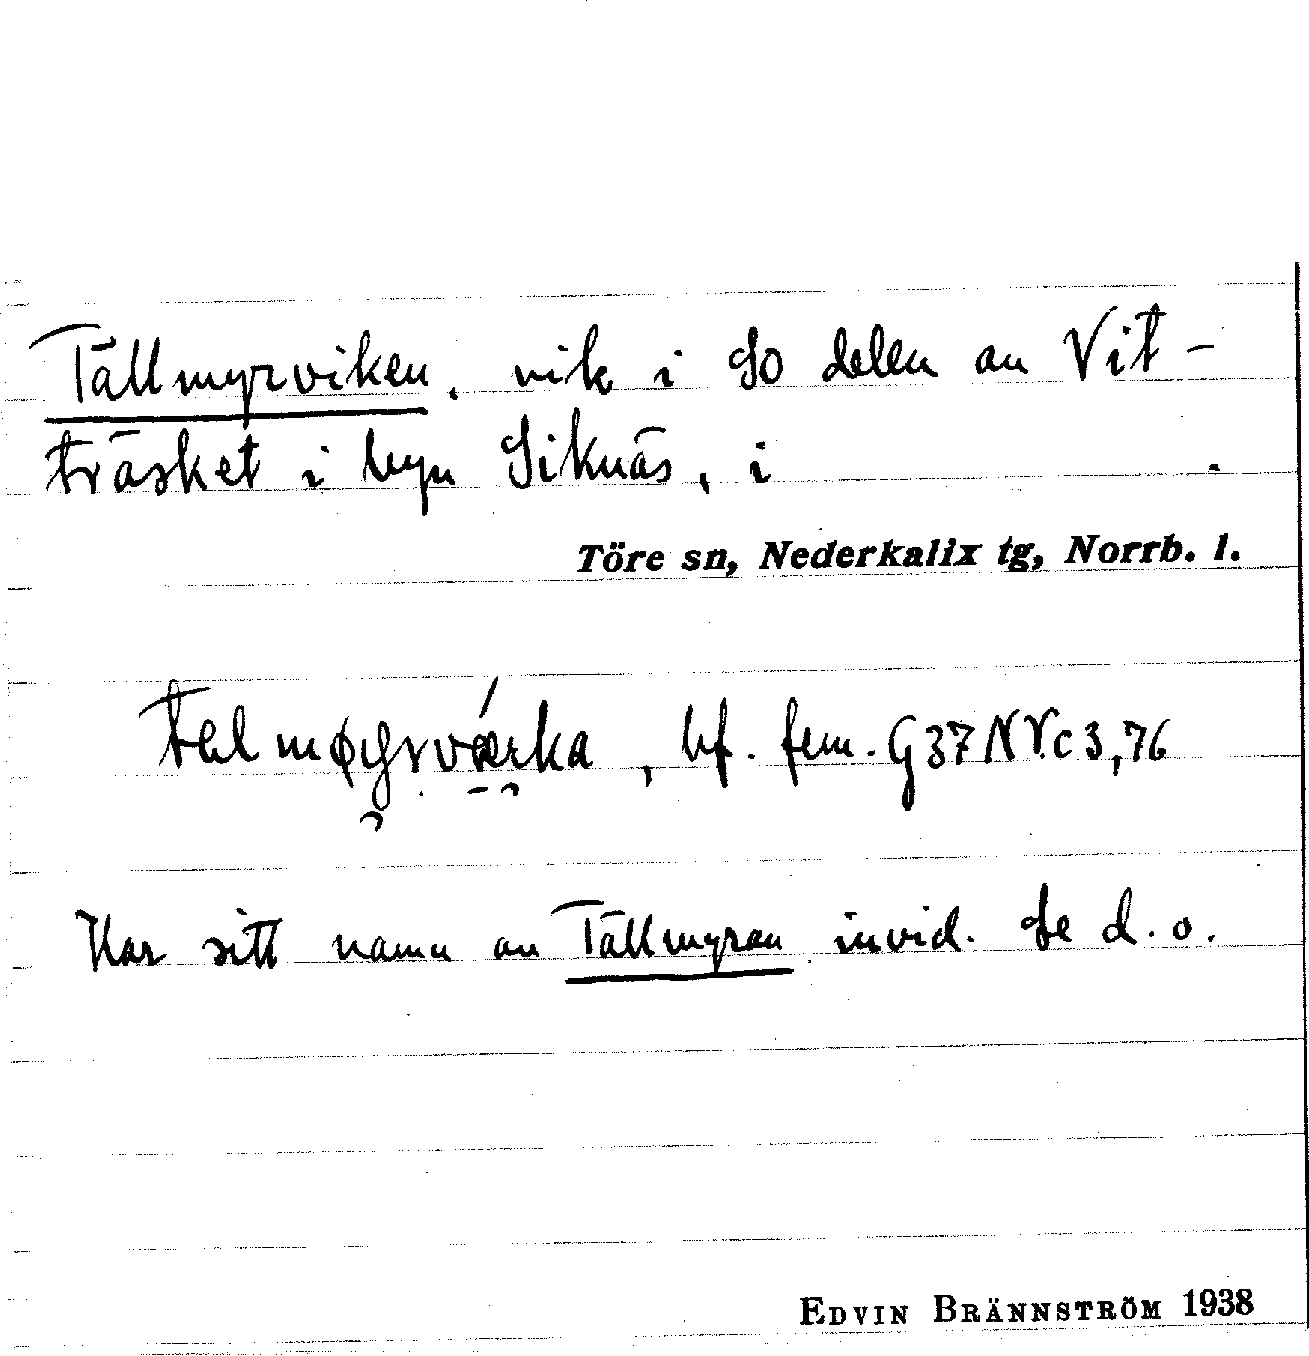 Tällmyrviken, vik i So delen av Vit-
träsket i byn Siknäs, i
Töre sn, Nederkalix tg, Norrb. l.
, bf. fem. G37 NV. c 3, 76
Har sitt namn av Tällmyran invid. Se d. o.
EDVIN BRÄNNSTRÖM 1938